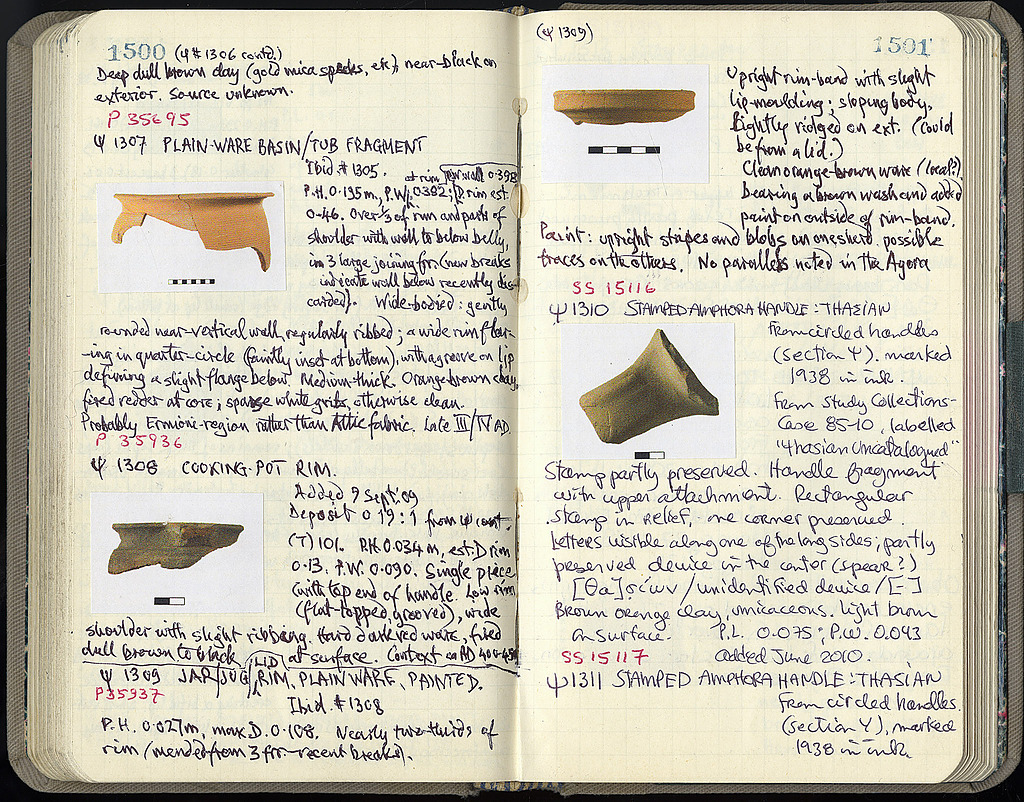 1500 (Ψ # 1306 contd.)
Deep dull brown clay (gold mica specks, etc), near-black on
exterior. Source unknown.
P 35695
Ψ 1307 PLAIN-WARE BASIN/TUB FRAGMENT
Ibid # 1305. at rim, P.W. wall 0.398
P.H. 0.195m, P.W. 0.392; D. rim est.
0.46. Over ⅓ of rim and parts of
shoulder with wall to below belly,
in 3 large joining frr. (new breaks
indicate wall below recently dis-
carded). Wide-bodied: gently
rounded near-vertical wall, regularly ribbed; a wide rim flar-
-ing in quarter-circle (faintly inset at bottom), with a groove on lip
defining a slight flange below. Medium-thick. Orange-brown clay,
fired redder at core; sparse white grits, otherwise clean.
Probably Ermione-region rather than Attic fabric. Late III/IV AD
P 35936
Ψ 1308 COOKING-POT RIM.
Added 9 Sept. '09
Deposit O 19:1 from Ψ cont.
(T) 101. P.H. 0.034 m, est. D rim
0.13. P.W. 0.090. Single piece
(with top end of handle. Low rim
(flat-topped, grooved), wide
shoulder with slight ribbing. Hard dark red ware, fired
dull brown to black at surface. Context ca AD 400-450
Ψ 1309 JAR/JUG/LID RIM, PLAIN WARE, PAINTED.
P35937
Ibid. # 1308
P.H. 0.027m, max. D. 0.108. Nearly two-thirds of
rim (mended from 3 frr. - recent breaks).
(Ψ 1309)
1501
Upright rim-band with slight
lip-moulding; sloping body.
Lightly ridged on ext. (Could
be from a lid.)
Clean orange-brown ware (local?)
bearing a brown wash and added
paint on outside of rim-band.
Paint: upright stripes and blobs on one sherd. possible
traces on the others. No parallels noted in the Agora
SS 15116
Ψ 1310 STAMPED AMPHORA HANDLE: THASIAN
From circled handles
(section Y). marked
1938 in ink.
From Study Collections-
Case 85-10, labelled
"Thasian Uncatalogued"
Stamp partly preserved. Handle fragment
with upper attachment. Rectangular
stamp in relief, one corner preserved.
Letters visible along one of the long sides; partly
preserved device in the center (spear?)
[Θα]σίων / unidentified device / [- -]
Brown orange clay, micaceous. light brown
on surface. P.L. 0.075; P.W. 0.043
SS 15117 added June 2010.
Ψ 1311 STAMPED AMPHORA HANDLE: THASIAN
From circled handles.
(section Y), marked
1938 in ink